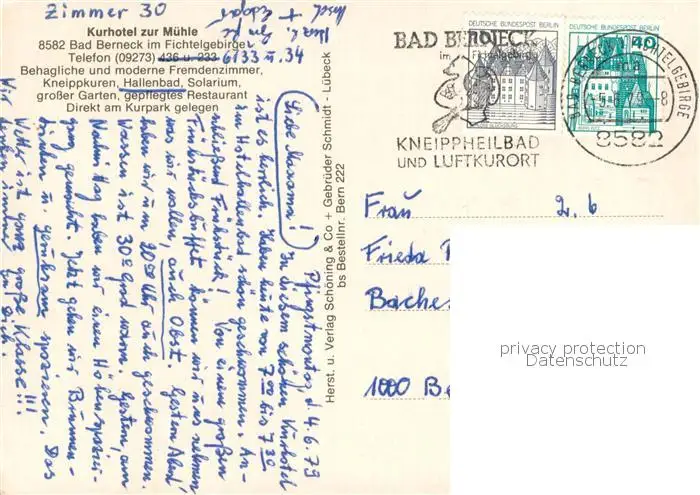 Zimmer 30
Kurhotel zur Mühle
8582 Bad Berneck im Fichtelgebirge
Telefon (09273) 436 u. 233 6133 u. 34
Behagliche und moderne Fremdenzimmer,
Kneippkuren, Hallenbad, Solarium,
großer Garten, gepflegtes Restaurant
Direkt am Kurpark gelegen
Pfingstmontag, d. 4.6.79
Liebe Mamama!
In diesem schönen Kurhotel
ist es herrlich. Haben heute von 7.00 bis 7.30
im Hotelhallenbad schön geschwommen. An-
schließend Frühstück! Von einem großen
Frühstücksbuffet können wir uns nehmen
was wir wollen, auch Obst. Gestern Abend
haben wir um 20.00 Uhr auch geschwommen.
Wasser ist 30 Grad warm. Gestern, am
Nachmittag haben wir einen Höhenspazier-
gang gemacht. Jetzt gehen wir Brunnen-
trinken u. gemeinsam spazieren. Das
Wetter ist ganz große Klasse!!!
Wir denken immer an Dich.
Herst. u. Verlag Schöning & Co + Gebrüder Schmidt - Lübeck
bs Bestellnr. Bern 222
DEUTSCHE BUNDESPOST BERLIN
DEUTSCHE BUNDESPOST BERLIN
40
BAD BERNECK
im Fichtelgebirge
KNEIPPHEILBAD
UND LUFTKURORT
BAD BERNECK I FICHTELGEBIRGE
8582
Frau
Frieda
Baches
1000 Be
privacy protection
Datenschutz